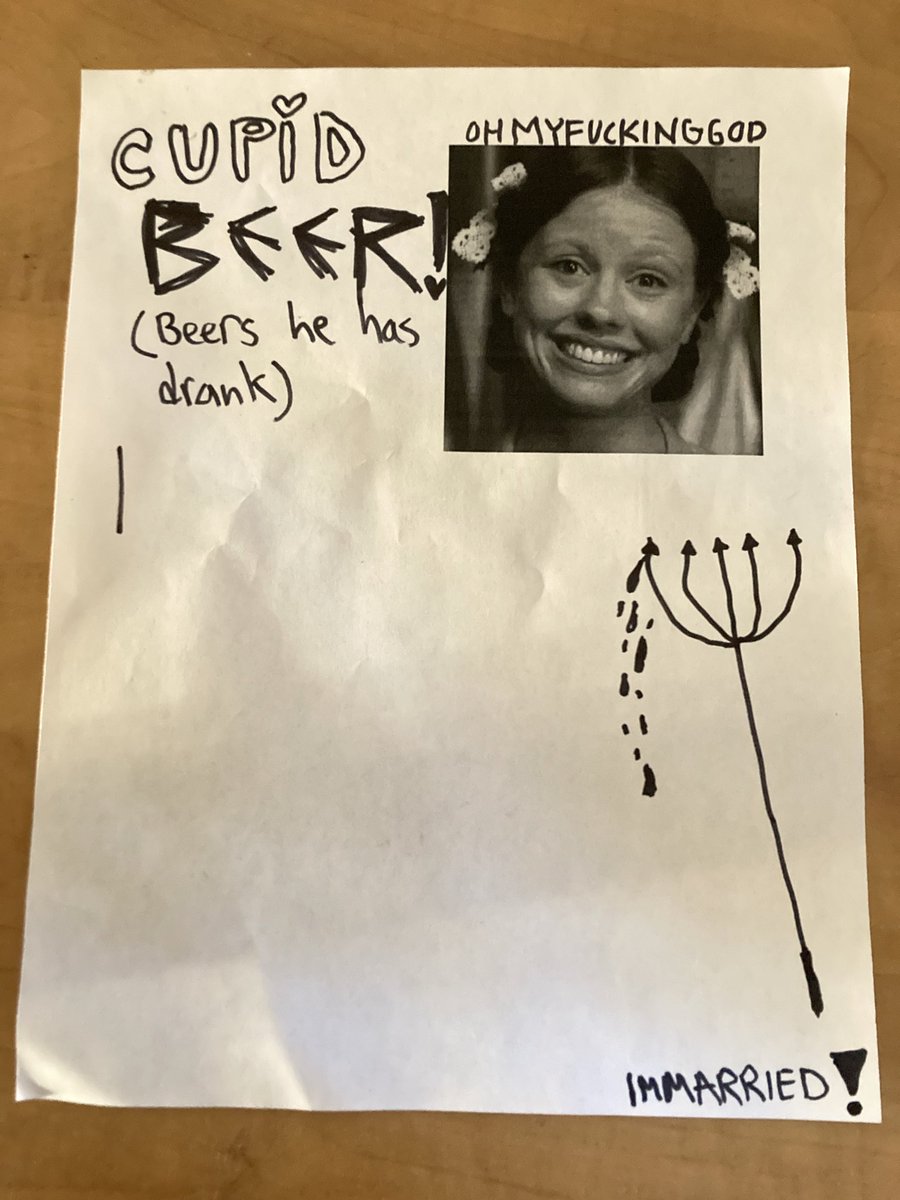 CUPiD
BEER!
(Beers he has
drank)
|
OHMYFUCKINGGOD
IMMARRIED!